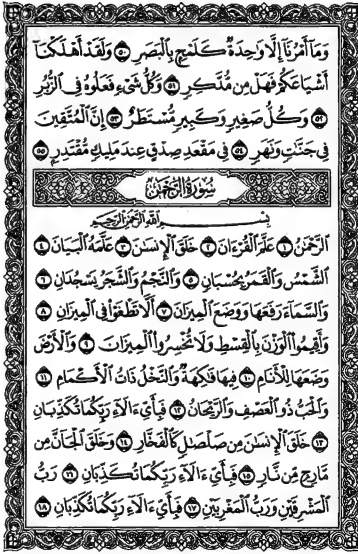 وَمَآ أَمْرُنَآ إِلَّا وَٰحِدَةٌ كَلَمْحٍۭ بِٱلْبَصَرِ ۝٥٠ وَلَقَدْ أَهْلَكْنَآ
أَشْيَاعَكُمْ فَهَلْ مِن مُّدَّكِرٍ ۝٥١ وَكُلُّ شَىْءٍ فَعَلُوهُ فِى ٱلزُّبُرِ
۝٥٢ وَكُلُّ صَغِيرٍ وَكَبِيرٍ مُّسْتَطَرٌ ۝٥٣ إِنَّ ٱلْمُتَّقِينَ
فِى جَنَّٰتٍ وَنَهَرٍ ۝٥٤ فِى مَقْعَدِ صِدْقٍ عِندَ مَلِيكٍ مُّقْتَدِرٍۭ ۝٥٥
سُورَةُ الرَّحْمٰن
بِسْمِ ٱللَّهِ ٱلرَّحْمَٰنِ ٱلرَّحِيمِ
ٱلرَّحْمَٰنُ ۝١ عَلَّمَ ٱلْقُرْءَانَ ۝٢ خَلَقَ ٱلْإِنسَٰنَ ۝٣ عَلَّمَهُ ٱلْبَيَانَ ۝٤
ٱلشَّمْسُ وَٱلْقَمَرُ بِحُسْبَانٍ ۝٥ وَٱلنَّجْمُ وَٱلشَّجَرُ يَسْجُدَانِ ۝٦
وَٱلسَّمَآءَ رَفَعَهَا وَوَضَعَ ٱلْمِيزَانَ ۝٧ أَلَّا تَطْغَوْا۟ فِى ٱلْمِيزَانِ ۝٨
وَأَقِيمُوا۟ ٱلْوَزْنَ بِٱلْقِسْطِ وَلَا تُخْسِرُوا۟ ٱلْمِيزَانَ ۝٩ وَٱلْأَرْضَ
وَضَعَهَا لِلْأَنَامِ ۝١٠ فِيهَا فَٰكِهَةٌ وَٱلنَّخْلُ ذَاتُ ٱلْأَكْمَامِ ۝١١
وَٱلْحَبُّ ذُو ٱلْعَصْفِ وَٱلرَّيْحَانُ ۝١٢ فَبِأَىِّ ءَالَآءِ رَبِّكُمَا تُكَذِّبَانِ
۝١٣ خَلَقَ ٱلْإِنسَٰنَ مِن صَلْصَٰلٍ كَٱلْفَخَّارِ ۝١٤ وَخَلَقَ ٱلْجَآنَّ مِن
مَّارِجٍ مِّن نَّارٍ ۝١٥ فَبِأَىِّ ءَالَآءِ رَبِّكُمَا تُكَذِّبَانِ ۝١٦ رَبُّ
ٱلْمَشْرِقَيْنِ وَرَبُّ ٱلْمَغْرِبَيْنِ ۝١٧ فَبِأَىِّ ءَالَآءِ رَبِّكُمَا تُكَذِّبَانِ ۝١٨